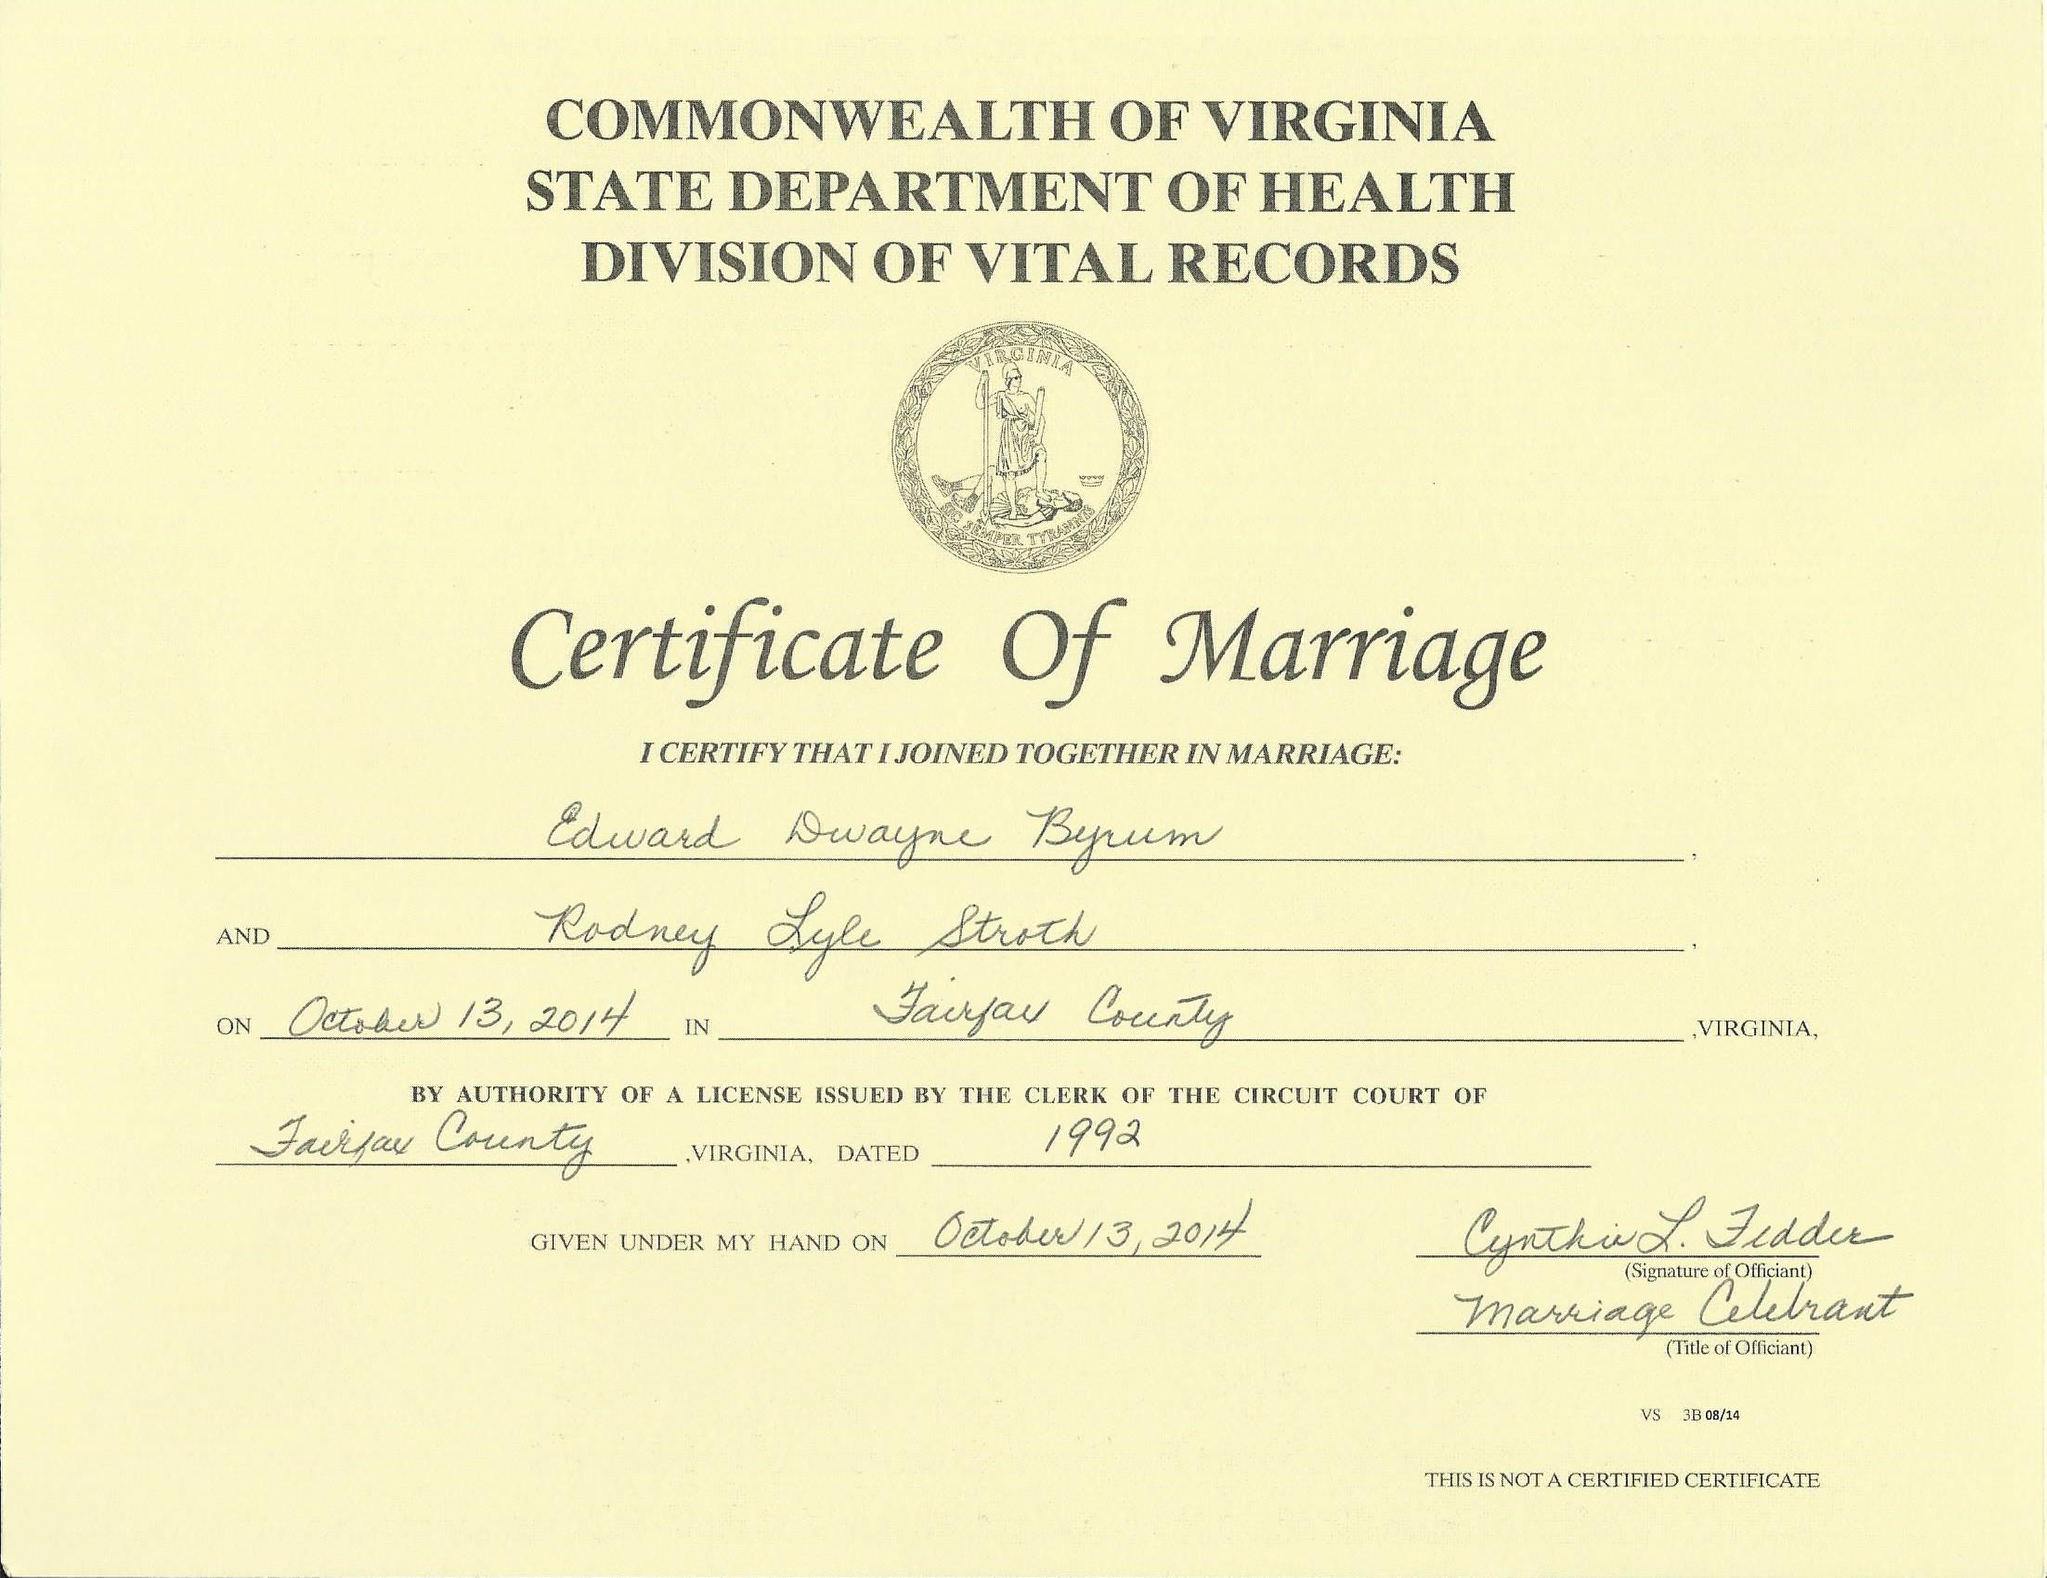 COMMONWEALTH OF VIRGINIA
STATE DEPARTMENT OF HEALTH
DIVISION OF VITAL RECORDS
VIRGINIA
SIC SEMPER TYRANNIS
Certificate Of Marriage
I CERTIFY THAT I JOINED TOGETHER IN MARRIAGE:
Edward Dwayne Byrum,
AND Rodney Lyle Stroth,
ON October 13, 2014 IN Fairfax County ,VIRGINIA,
BY AUTHORITY OF A LICENSE ISSUED BY THE CLERK OF THE CIRCUIT COURT OF
Fairfax County ,VIRGINIA, DATED 1992
GIVEN UNDER MY HAND ON October 13, 2014 Cynthia L. Fedder
(Signature of Officiant)
Marriage Celebrant
(Title of Officiant)
VS 3B 08/14
THIS IS NOT A CERTIFIED CERTIFICATE